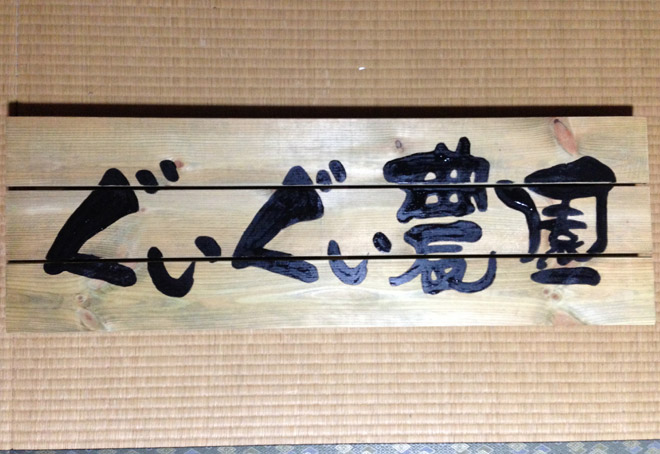 ぐいぐい農園